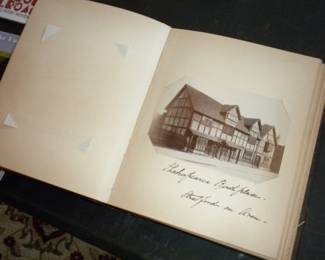 Shakespeare's Birthplace.
Stratford on Avon.